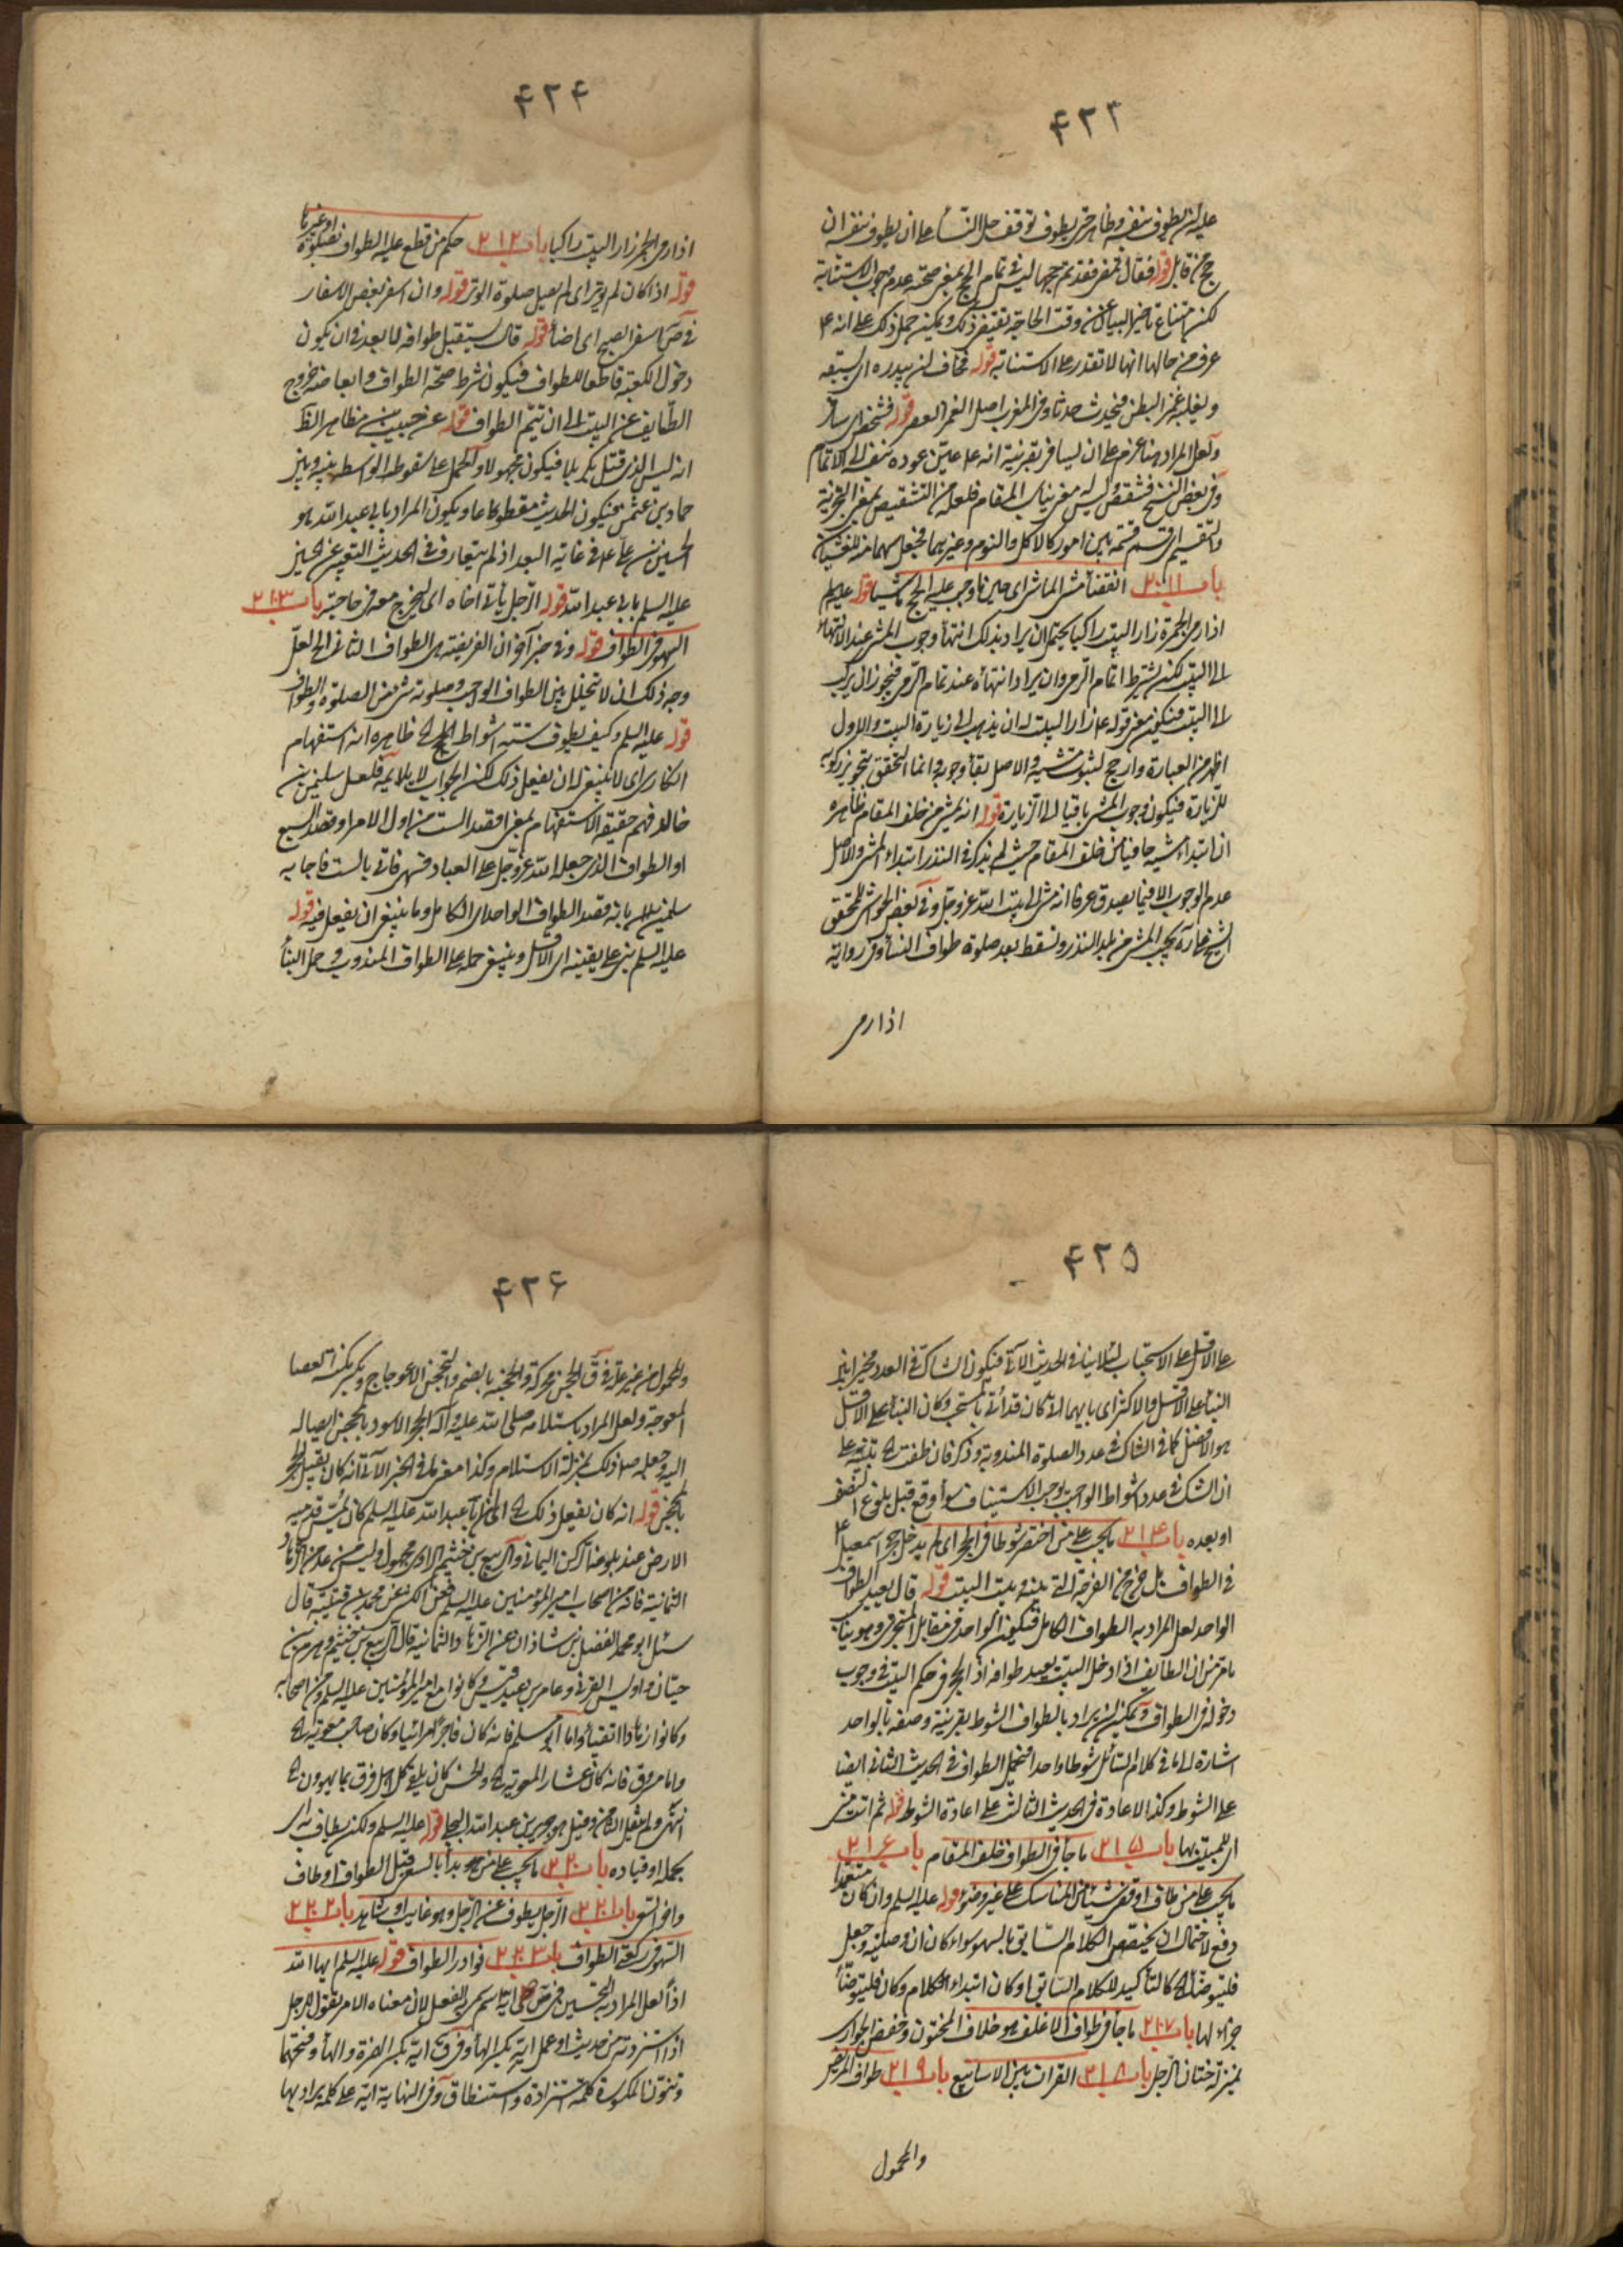 ۴۲۳
عليه ان يطوف بنفسه وظاهر حتى يطوف توقف حل النساء على ان يطوف بنفسه ان
حج من قابل قوله فقال تمضى فقد تم حجها ليس فى تمام الحج بمعنى صحته عدم وجوب الاستنابة
لكن امتناع تاخير البيان عن وقت الحاجة يقتضى ذلك ويمكن حمل ذلك على انه ع
عرف من حالها انها لا تقدر على الاستنابة قوله فخاف ان يبدره اى يسبقه
ويغلبه غمز البطن فيحدث حدثا وفى المغرب اصل الغمز العصر قوله فشخص اى سافر
ولعل المراد هنا عزم على ان يسافر بقرينة انه ع عين عوده بنفسه الى الاتمام
وفى بعض النسخ فشقص ليس له معنى يناسب المقام فلعله من التشقيص بمعنى التجزية
والتقسيم اى قسم قسمة بين امور كالاكل والنوم وغيرهما فجعل سهما منه للغشيان
باب ٢١١ انقضاء مشى الماشى اى حين ما وجب عليه الحج ماشيا قوله عليه السلم
اذا رمى الجمرة زار البيت راكبا يحتمل ان يراد بذلك انتهاء وجوب المشى عند الانتهاء
الى البيت لكن بشرط اتمام الرمى وان يراد انتهاءه عند تمام الرمى فيجوز ان يركب
الى البيت فيكون معنى قوله ع زار البيت له ان يذهب الى زيارة البيت والاول
اظهر من العبارة وارجح لثبوت مشيه والاصل بقاء وجوبه وانما التحقق تجويز ركوبه
للزيارة فيكون وجوب المشى باقيا الى الزيارة قوله انه يمشى من خلف المقام ظاهره
ان ابتداء مشيه حافيا من خلف المقام حيث لم يذكر فى النذر ابتداء المشى والاصل
عدم الوجوب الا فيما يصدق عرفا انه مشى الى بيت الله عز وجل وفى بعض الحواشى للمحقق
الشيخ على ره يجب المشى من بلد النذر ويسقط بعد صلوة طواف النساء وفى رواية
اذا رمى
۴۲۴
اذا رمى الجمرة زار البيت راكبا باب ٢١٢ حكم من قطع عليه الطواف بصلوة او غيرها
قوله اذا كان لم يوتر اى لم يصل صلوة الوتر قوله وان اسفر بعض الاسفار
فى ص اسفر الصبح اى اضاء قوله قال يستقبل طوافه لا بعد فى ان يكون
دخول الكعبة قاطعا للطواف فيكون شرط صحة الطواف وابعاضه خروج
الطائف عن البيت الى ان يتم الطواف قوله عن حبيب بن مظاهر الظ
انه ليس الذى قتل بكربلا فيكون مجهولا والحمل على سقوط الواسطة بينه وبين
حماد بن عثمن فيكون الحديث مقطوعا ويكون المراد بابى عبد الله هو
الحسين بن على ع فى غاية البعد اذ لم يتعارف فى الحديث التعبير عن الحسين
عليه السلم بابى عبد الله قوله الرجل ياتى اخاه الى ليخرج معه فى حاجته باب ٢١٣
السهو فى الطواف قوله وفى خبر آخر ان الفريضة هى الطواف الثانى الخ لعل
وجه ذلك ان لا تتخلل بين الطواف الواجب وصلوته شىء من الصلوة والطواف
قوله عليه السلم وكيف يطوف ستة اشواط الخ ظاهره انه استفهام
انكارى اى لا ينبغى له ان يفعل ذلك لكن الجواب لا يلايمه فلعل سليمن بن
خالد فهم حقيقة الاستفهام بمعنى اقصد الست من اول الامر او قصد السبع
او الطواف الذى جعله الله عز وجل على العباد فسهى فاتى بالست فاجابه
سليمن بانه قصد الطواف الواحد اى الكامل وما ينبغى ان يفعل فيه قوله
عليه السلم يبنى على يقينه اى الاقل وينبغى حمله على الطواف المندوب وحمل البناء
۴۲۵
على الاقل على الاستحباب لئلا ينافى الحديث الآتى فيكون الشاك فى العدد مخيرا بين
البناء على الاقل والاكثر اى بايهما كان قد اتى بالمستحب وكان البناء على الاقل
هو الافضل كما فى الشاك فى عدد الصلوة المندوبة وذكر فان طفت الخ تنبيه على
ان الشك فى عدد اشواط الواجب يوجب الاستيناف سواء وقع قبل بلوغ النصف
او بعده باب ٢١٤ ما يجب على من اختصر شوطا فى الحجر اى لم يدخل حجر اسمعيل ع
فى الطواف بل خرج من الفرجة التى بينه وبين البيت قوله قال يعيد الطواف
الواحد لعل المراد به الطواف الكامل فيكون الواحد فى مقابل المتجزى وهو يناسب
ما مر من ان الطائف اذا دخل البيت يعيد طوافه اذ الحجر فى حكم البيت فى وجوب
دخوله فى الطواف ويمكن ان يراد بالطواف الشوط بقرينة وصفه بالواحد
اشارة الى ما فى كلام السائل شوطا واحدا فيحمل الطواف فى الحديث الثانى ايضا
على الشوط وكذا الاعادة فى الحديث الثالث على اعادة الشوط قوله ثم انت منى
اى للمبيت بها باب ٢١٥ ما جاء فى الطواف خلف المقام باب ٢١٦
ما يجب على من طاف او قضى شيئا من المناسك على غير وضوء قوله عليه السلم وان كان متعمدا
دفع لاحتمال ان يختص الكلام السابق بالسهو سواء كان ان وصلية وجعل
فليتوضأ الخ كالتأكيد للكلام السابق او كان ابتداء الكلام وكان فليتوضأ
جزاء لها باب ٢١٧ ما جاء فى طواف الاغلف هو خلاف المختون وخفض الجوارى
بمنزلة ختان الرجل باب ٢١٨ القران بين الاسابيع باب ٢١٩ طواف المريض
والمحمول
۴۲۶
والمحمول من غير علة فى ق الحجن محركة والحجنة بالضم والتحجن الاعوجاج وكمنبر العصا
المعوجة ولعل المراد باستلامه صلى الله عليه وآله الحجر الاسود بالمحجن ايصاله
اليه وجعله ص ذلك بمنزلة الاستلام وكذا معنى ما فى الخبر الآتى انه كان يقبل الحجر
بالمحجن قوله انه كان يفعل ذلك الخ اى ان ابا عبد الله عليه السلم كان يمس قدميه
الارض عند بلوغ الركن اليمانى والربيع بن خثيم الراوى مجهول وليس من عد من الزهاد
الثمانية فانه من اصحاب امير المؤمنين عليه السلم فعن الكشى عن محمد بن قتيبة قال
سئل ابو محمد الفضل بن شاذان عن الزهاد الثمانية قال الربيع بن خثيم وهرم بن
حيان واويس القرنى وعامر بن عبد قيس وكانوا مع امير المؤمنين عليه السلم ومن اصحابه
وكانوا زهادا اتقياء واما ابو مسلم فانه كان فاجرا مرائيا وكان صاحب معوية الخ
واما مسروق فانه كان عشارا لمعوية الخ والحسن كان يلقى كل اهل فرق بما يهوون الخ
انتهى ولم ينقل الثامن وقيل هو جرير بن عبد الله البجلى قوله عليه السلم ولكن يطاف به اى
بحمله او قياده باب ٢٢٠ ما يجب على من بدأ بالسعى قبل الطواف او طاف
واخر السعى باب ٢٢١ الرجل يطوف عن الرجل وهو غايب او شاهد باب ٢٢٢
السهو فى ركعتى الطواف باب ٢٢٣ نوادر الطواف قوله عليه السلم ايها الله
اذا لعل المراد به التحسين فى ص ايه اسم سمى به الفعل لان معناه الامر تقول للرجل
اذا استزدته من حديث او عمل ايه بكسر الهاء وفى ق ايه بكسر الهمزة والهاء وفتحها
وتنون المكسورة كلمة استزادة واستنطاق وفى النهاية ايه على كلمة يراد بها